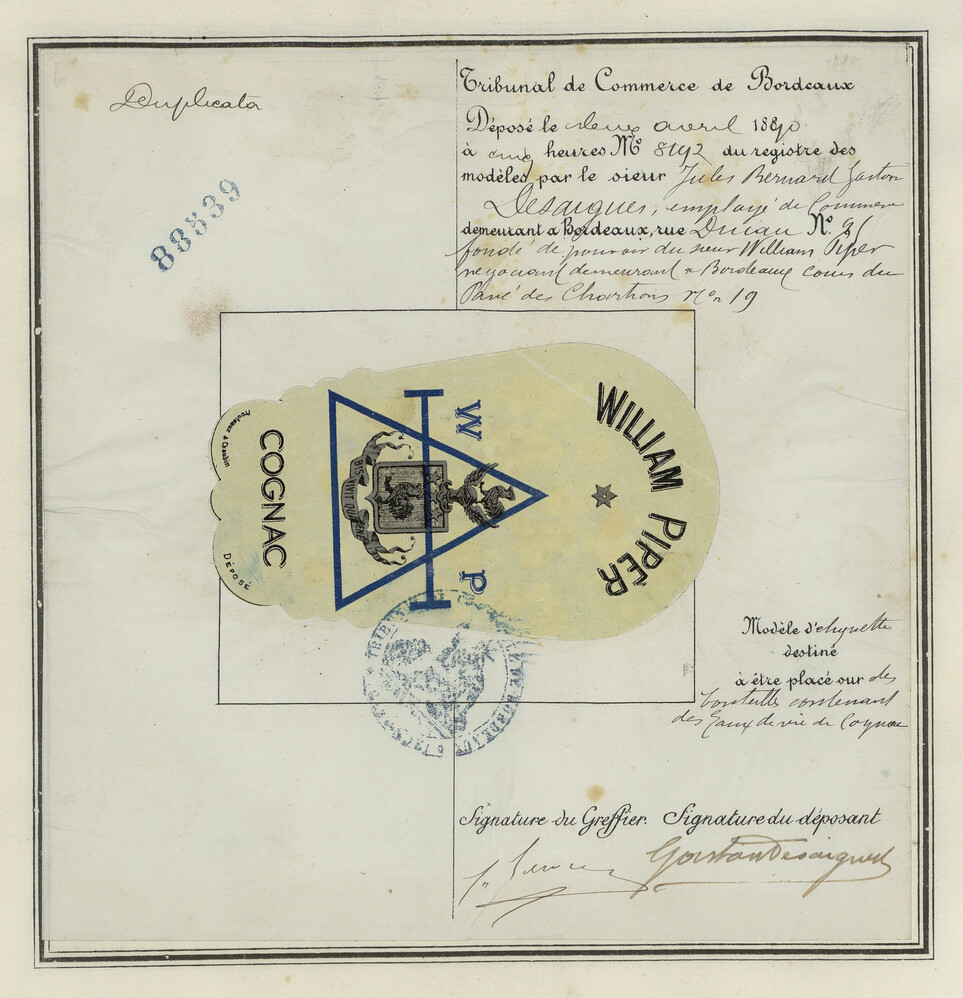 Duplicata
88539
Tribunal de Commerce de Bordeaux
Déposé le deux avril 1890
à cinq heures No 8192 du registre des
modèles par le sieur Jules Bernard Gaston
Desaigues, employé de Commerce
demeurant a Bordeaux, rue No
fondé de pouvoir du sieur William Piper
négociant demeurant a Bordeaux cours du
Pavé des Chartrons No 19
WILLIAM PIPER
W P
BIS VIVIT QUI
COGNAC
DÉPOSÉ
Modèle d'étiquette
destiné
à être placé sur des
bouteilles contenant
des Eaux de vie de Cognac
TRIBUNAL DE BORDEAUX
Signature du Greffier. Signature du déposant
Gaston Desaigues